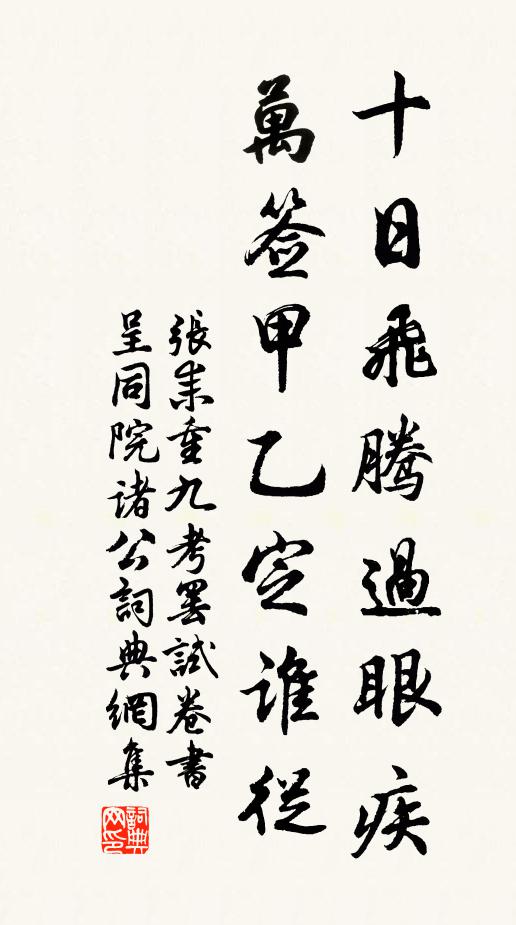 十日飛騰過眼疾
萬签甲乙定誰從
張耒重九考罢試卷書
呈同院諸公詞典網集
詞典
网印